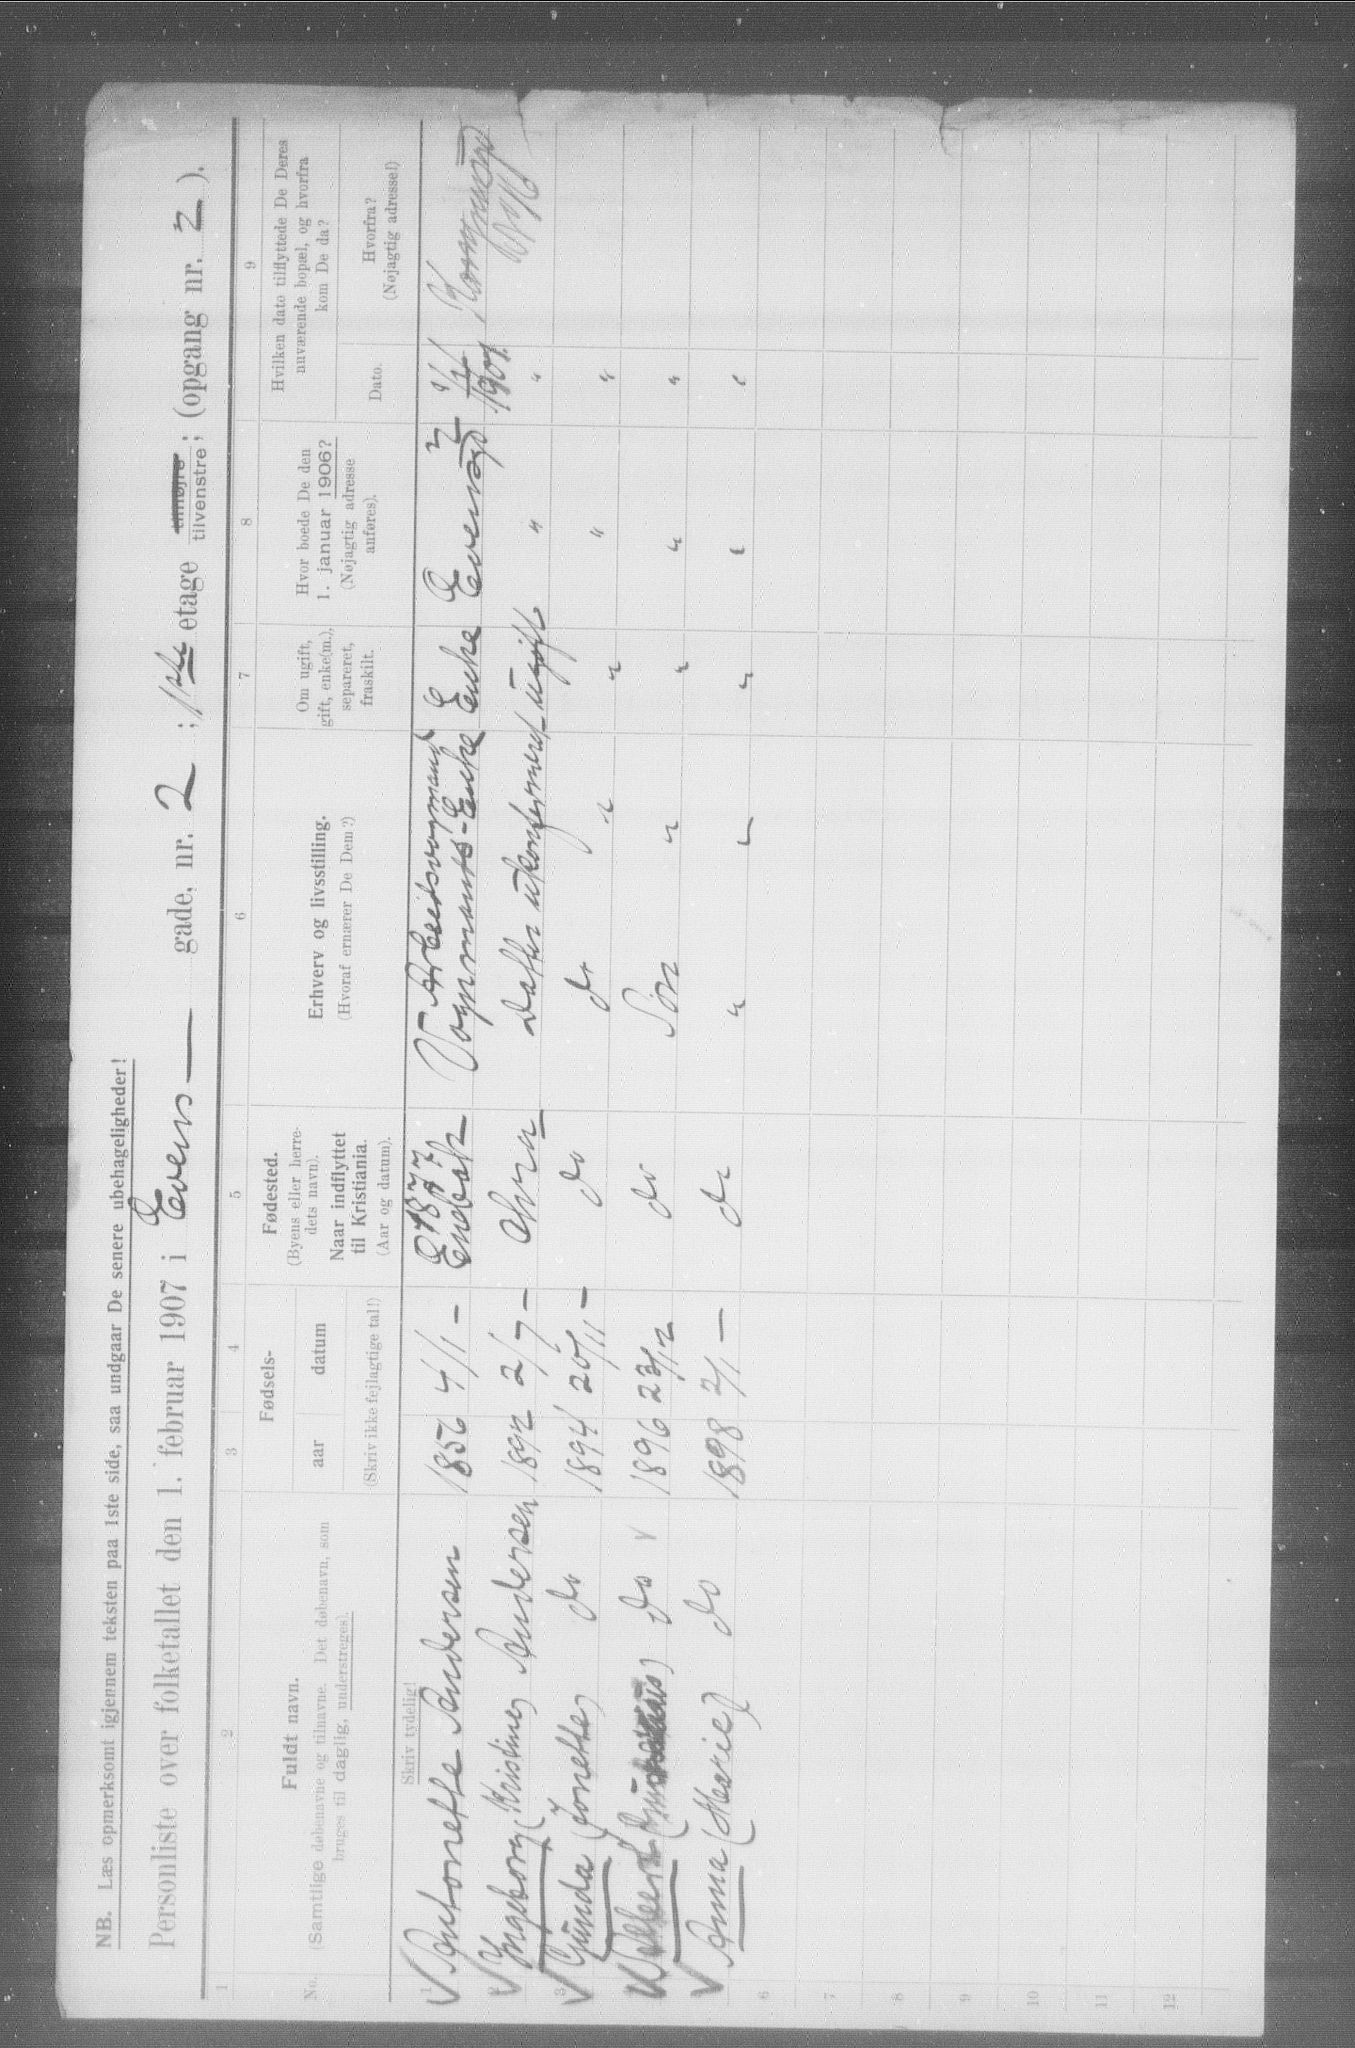 NB. Læs opmerksomt igjennem teksten paa 1ste side, saa undgaar De senere ubehageligheder!
Personliste over folketallet den 1. februar 1907 i Evens— gade, nr. 2 ; 1ste etage tilhøjre tilvenstre; (opgang nr. 2).
1 2 3 4 5 6 7 8 9
No.
Fuldt navn.
(Samtlige døbenavne og tilnavne. Det døbenavn, som
bruges til daglig, understreges).
Fødsels-
aar datum
(Skriv ikke fejlagtige tal!)
Fødested.
(Byens eller herre-
dets navn).
Naar indflyttet
til Kristiania.
(Aar og datum).
Erhverv og livsstilling.
(Hvoraf ernærer De Dem?)
Om ugift,
gift, enke(m.),
separeret,
fraskilt.
Hvor boede De den
1. januar 1906?
(Nøjagtig adresse
anføres).
Hvilken dato tilflyttede De Deres
nuværende bopæl, og hvorfra
kom De da?
Dato.
Hvorfra?
(Nøjagtig adresse!)
Skriv tydelig!
1 Antonette Andersen 1856 4/1 — 1877 Enebak Arbeidsvogmand Vognmands-Enke E Enke Evensgd 2 1/4 1901.
2 Ingeborg (Kristine) Andersen 1892 2/7 — Chra Datter ukonfirmeret ugift " "
3 Gunda (Jonette) do 1894 20/11 — do do " " " "
do 1896 23/12 do Søn " " " "
Anna (Marie) do 1898 2/1 — do " " " " "
6
7
8
9
10
11
12